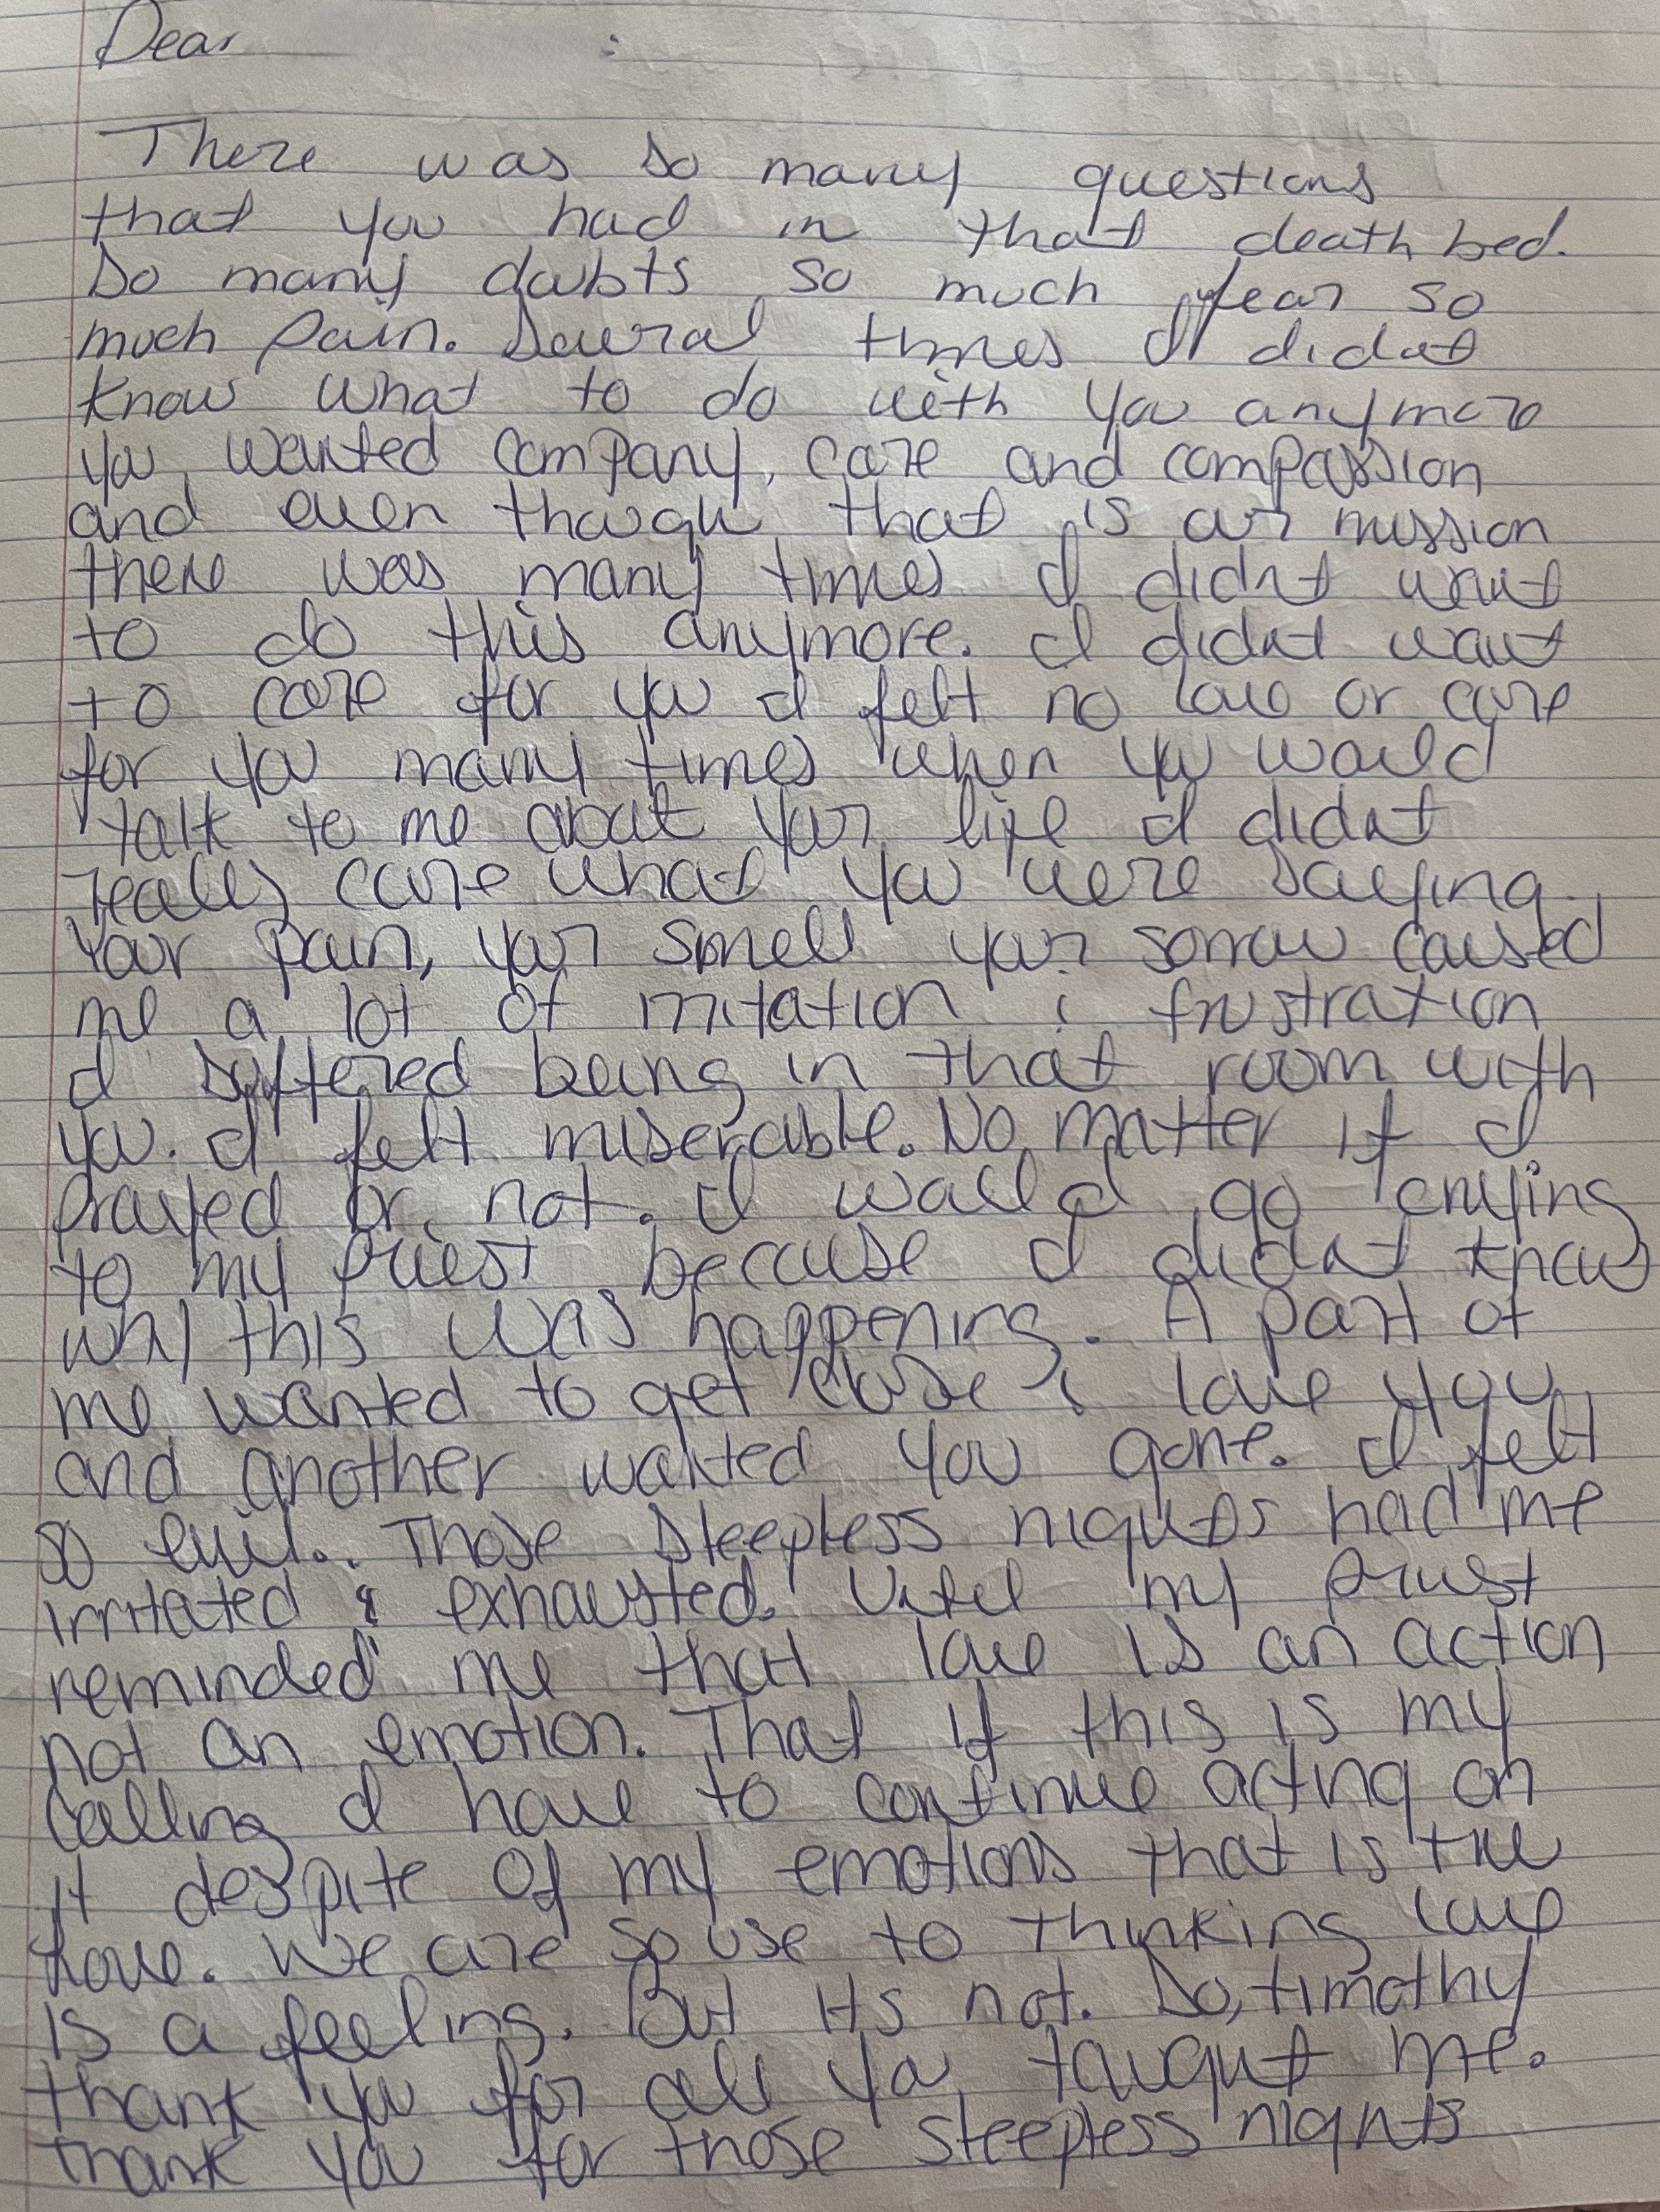 Dear :
There was so many questions
that you had in that death bed.
So many doubts so much fear so
much pain. Several times I didnt
know what to do with you anymore
you wanted company, care and compassion
and even though that is our mission
there was many times I didnt want
to do this anymore. I didnt want
to care for you I felt no love or care
for you many times when you would
talk to me about your life I didnt
really care what you were saying.
Your pain, your smell your sorrow caused
me a lot of irritation & frustration
I suffered being in that room with
you. I felt miserable. No matter if I
prayed or not. I would go crying
to my priest because I didnt know
why this was happening. A part of
me wanted to get close & love you
and another wanted you gone. I felt
so evil.. Those sleepless nights had me
irritated & exhausted. Until my priest
reminded me that love is an action
not an emotion. That if this is my
calling I have to continue acting on
it despite of my emotions that is true
love. We are so use to thinking love
is a feeling. But its not. So, timothy
thank you for all you taught me.
thank you for those sleepless nights